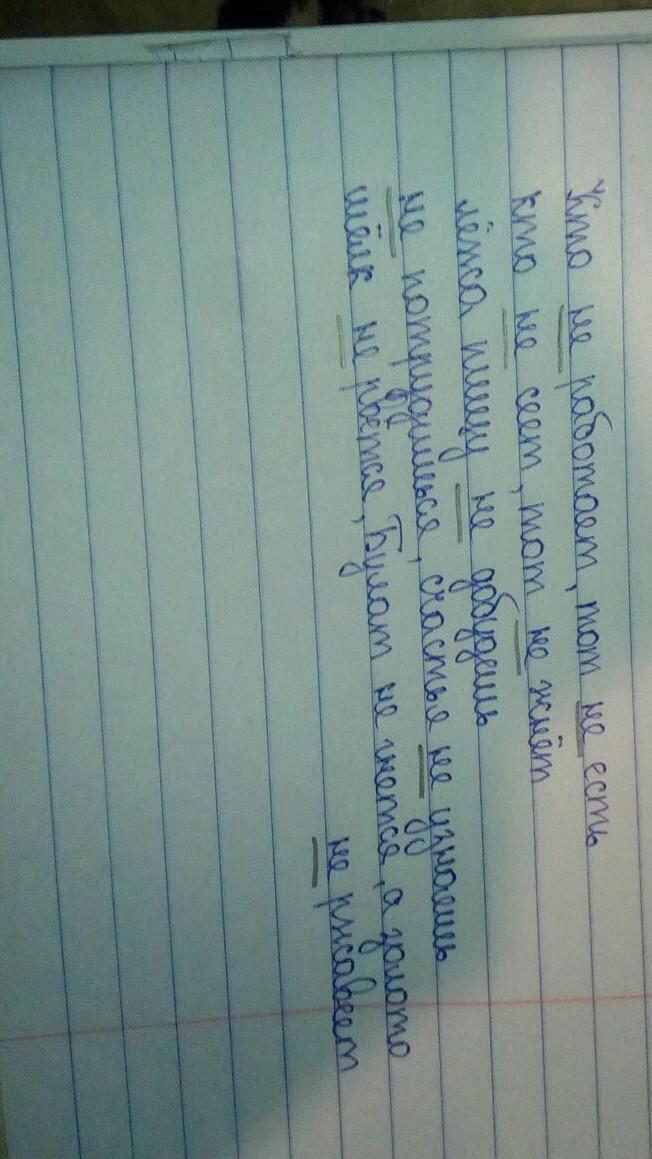 Кто не работает, тот не есть
кто не сеет, тот не жнёт
лёжа пищу не добудешь
не потрудишься, счастье не узнаешь
шёлк не рвётся, Булат не гнется, а золото
не ржавеет